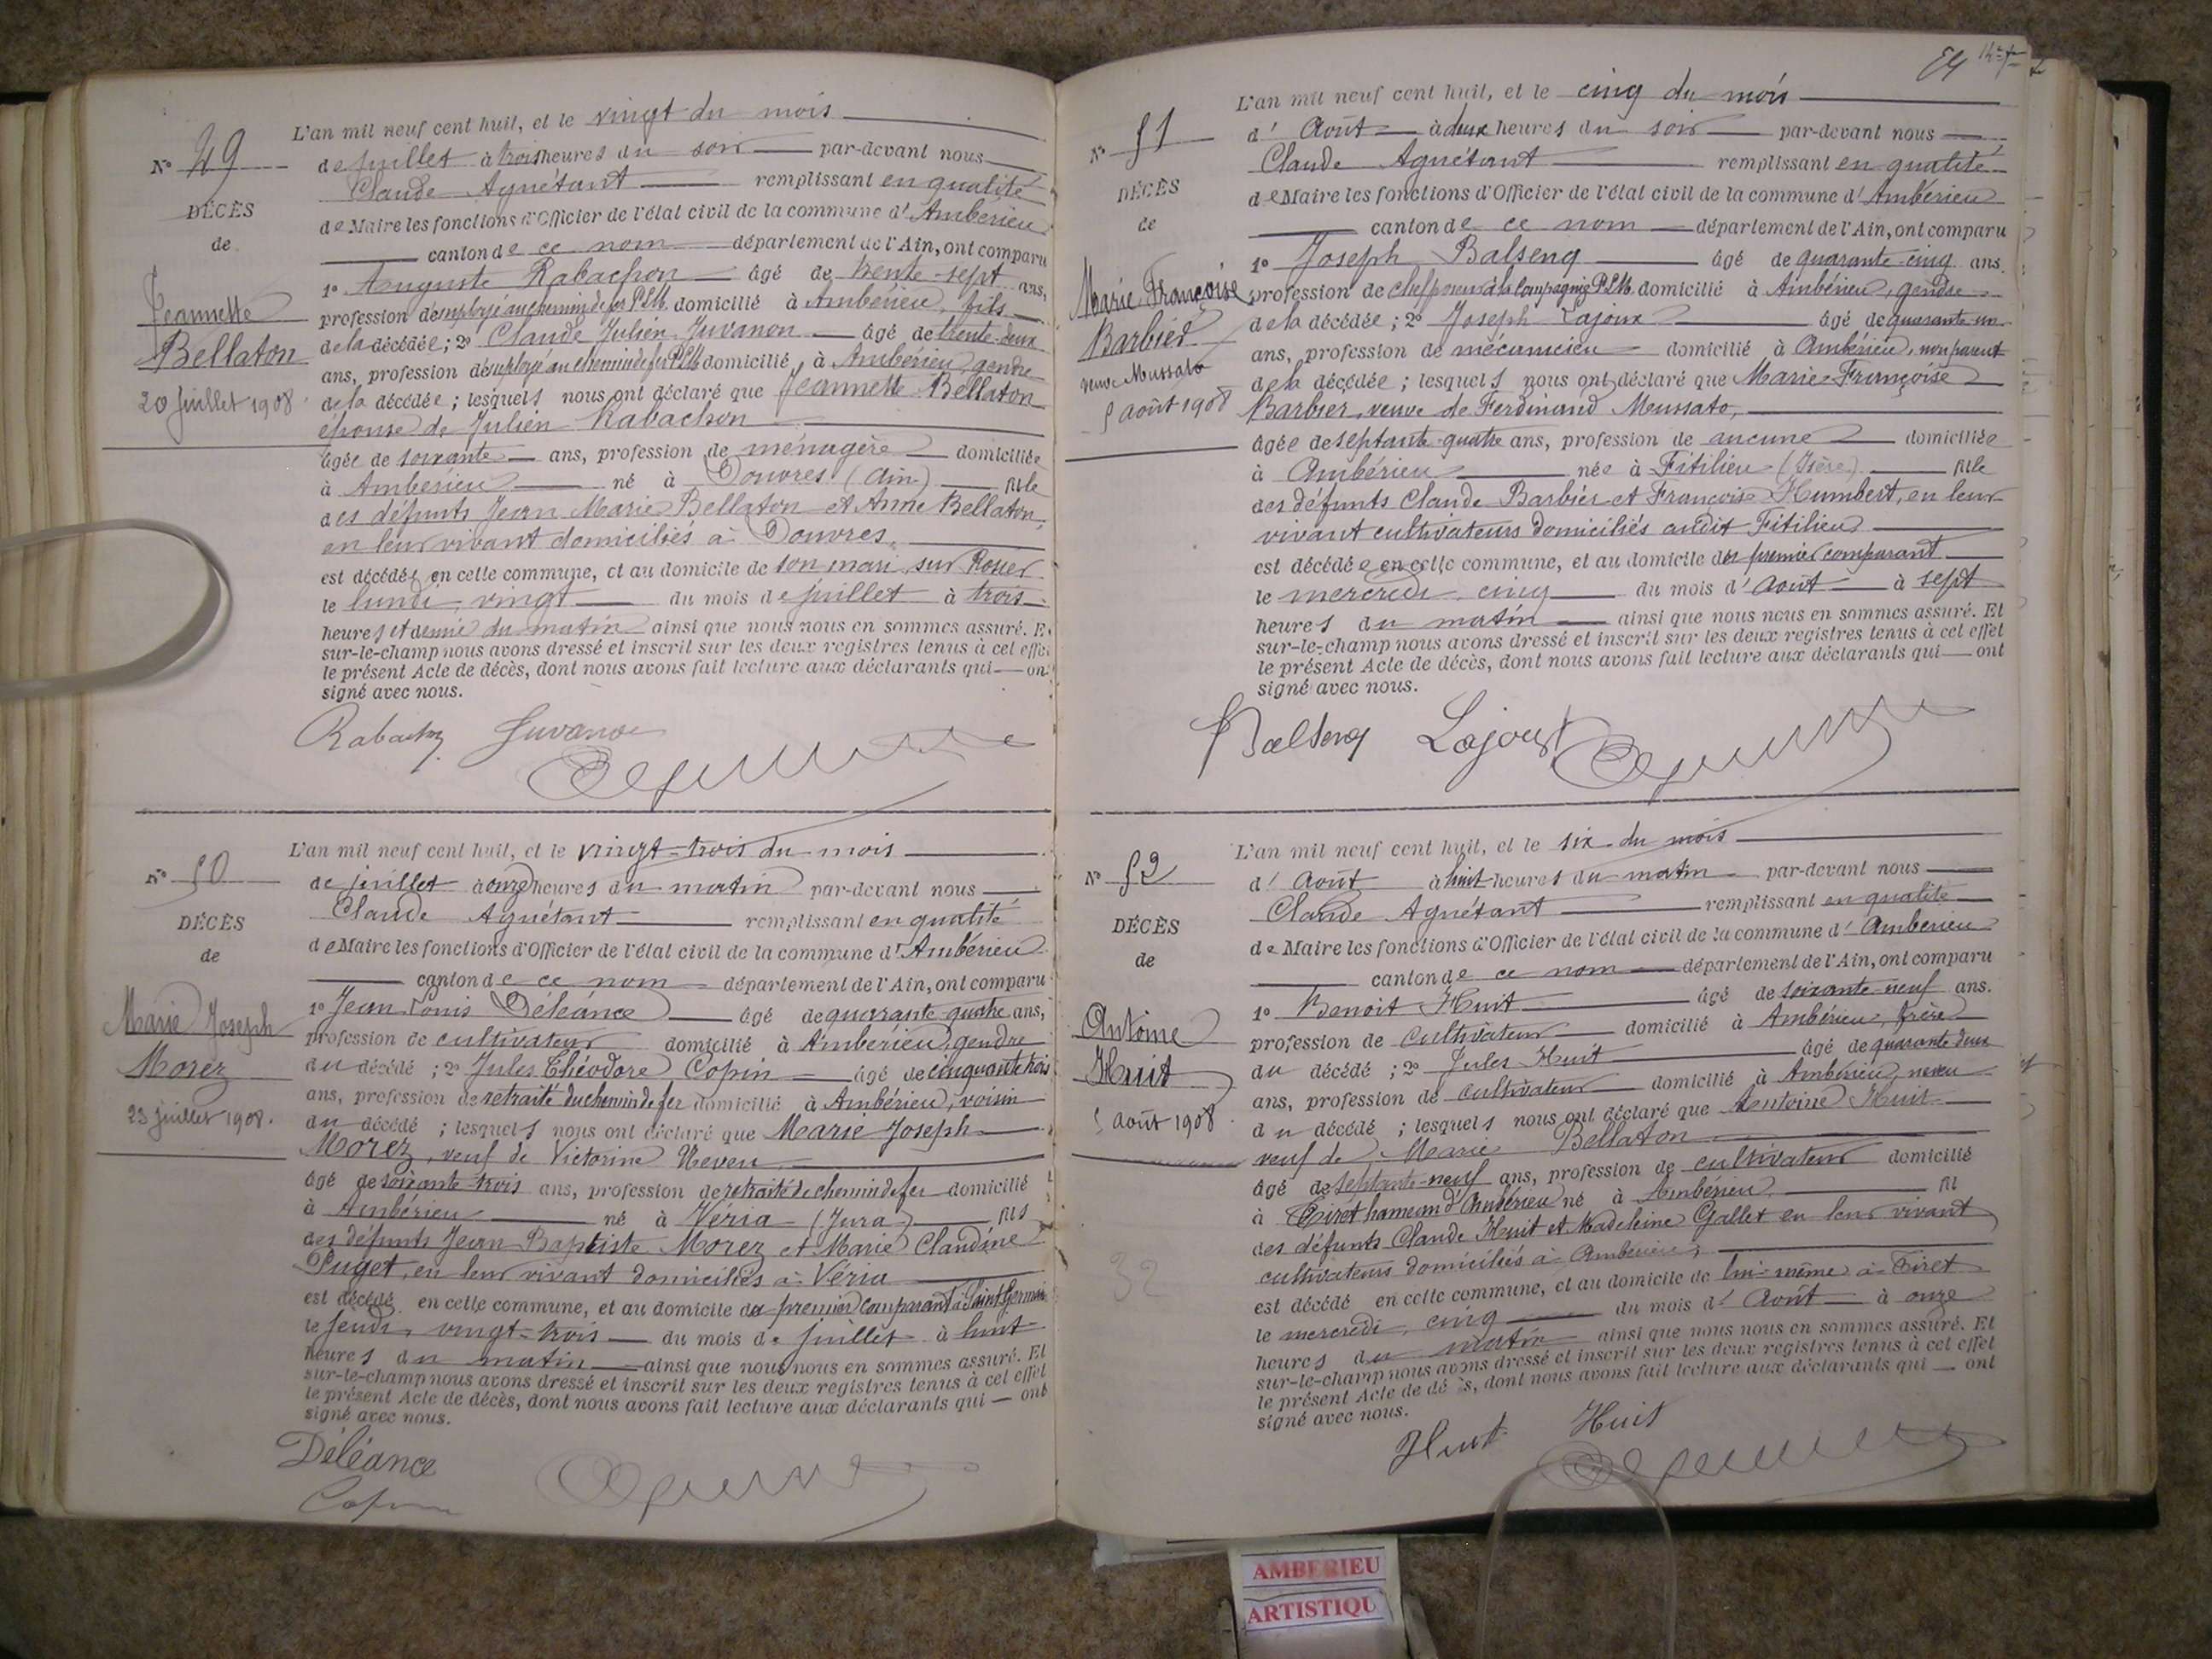 L'an mil neuf cent huit, et le vingt du mois
N° 49
de juillet à trois heures du soir par-devant nous
Claude Agnétant remplissant en qualité
DÉCÈS
de Maire les fonctions d'Officier de l'état civil de la commune d'Ambérieu
de
canton de ce nom département de l'Ain, ont comparu
1° Auguste Rabachon âgé de trente-sept ans,
Jeannette
profession d'employé au chemin de fer PLM domicilié à Ambérieu, fils
Bellaton
de la décédée; 2° Claude Julien Juvanon âgé de trente-deux
ans, profession d'employé au chemin de fer PLM domicilié à Ambérieu, gendre
20 juillet 1908
de la décédée; lesquels nous ont déclaré que Jeannette Bellaton
épouse de Julien Rabachon
âgée de soixante ans, profession de ménagère domiciliée
à Ambérieu né à Douvres (Ain) fille
des défunts Jean Marie Bellaton et Anne Bellaton,
en leur vivant domiciliés à Douvres,
est décédée en cette commune, et au domicile de son mari, sur Rosier
le lundi, vingt du mois de juillet à trois
heures et demie du matin ainsi que nous nous en sommes assuré. E
sur-le-champ nous avons dressé et inscrit sur les deux registres tenus à cet effe
le présent Acte de décès, dont nous avons fait lecture aux déclarants qui on
signé avec nous.
Rabachon Juvanon
L'an mil neuf cent huit, et le vingt-trois du mois
N° 50
de juillet à onze heures du matin par-devant nous
Claude Agnétant remplissant en qualité
DÉCÈS
de Maire les fonctions d'Officier de l'état civil de la commune d'Ambérieu
de
canton de ce nom département de l'Ain, ont comparu
1° Jean Louis Déléance âgé de quarante-quatre ans,
Marie Joseph
profession de cultivateur domicilié à Ambérieu, gendre
Morez
du décédé; 2° Jules Théodore Copin âgé de cinquante trois
ans, profession de retraité du chemin de fer domicilié à Ambérieu, voisin
23 juillet 1908.
du décédé; lesquels nous ont déclaré que Marie Joseph
Morez, veuf de Victorine Neveu
âgé de soixante-trois ans, profession de retraité de chemin de fer domicilié
à Ambérieu né à Véria (Jura) fils
des défunts Jean Baptiste Morez et Marie Claudine
Puget, en leur vivant domiciliés à Véria
est décédé en cette commune, et au domicile du premier comparant à Saint Germain
le jeudi, vingt-trois du mois de juillet à huit
heures du matin ainsi que nous nous en sommes assuré. Et
sur-le-champ nous avons dressé et inscrit sur les deux registres tenus à cet effet
le présent Acte de décès, dont nous avons fait lecture aux déclarants qui ont
signé avec nous.
Déléance
Copin
54
L'an mil neuf cent huit, et le cinq du mois
N° 51
d'Août à deux heures du soir par-devant nous
Claude Agnétant remplissant en qualité
DÉCÈS
de Maire les fonctions d'Officier de l'état civil de la commune d'Ambérieu
de
canton de ce nom département de l'Ain, ont comparu
1° Joseph Balseng âgé de quarante-cinq ans.
Marie Françoise
profession de chef poseur à la Compagnie PLM domicilié à Ambérieu, gendre
Barbier
de la décédée; 2° Joseph Lajoux âgé de quarante-un
veuve Mussato
ans, profession de mécanicien domicilié à Ambérieu, non parent
de la décédée; lesquels nous ont déclaré que Marie Françoise
5 août 1908
Barbier, veuve de Ferdinand Meussato,
âgée de septante-quatre ans, profession de aucune domiciliée
à Ambérieu née à Fitilieu (Isère) fille
des défunts Claude Barbier et Françoise Humbert, en leur
vivant cultivateurs domiciliés audit Fitilieu
est décédée en cette commune, et au domicile du premier comparant
le mercredi, cinq du mois d'Août à sept
heures du matin ainsi que nous nous en sommes assuré. Et
sur-le-champ nous avons dressé et inscrit sur les deux registres tenus à cet effet
le présent Acte de décès, dont nous avons fait lecture aux déclarants qui ont
signé avec nous.
Balseng Lajoux
L'an mil neuf cent huit, et le six du mois
N° 52
d'Août à huit heures du matin par-devant nous
Claude Agnétant remplissant en qualité
DÉCÈS
de Maire les fonctions d'Officier de l'état civil de la commune d'Ambérieu
de
canton de ce nom département de l'Ain, ont comparu
1° Benoit Huit âgé de soixante-neuf ans.
Antoine
profession de cultivateur domicilié à Ambérieu, frère
Huit
du décédé; 2° Jules Huit âgé de quarante deux
ans, profession de cultivateur domicilié à Ambérieu, neveu
5 août 1908
du décédé; lesquels nous ont déclaré que Antoine Huit
veuf de Marie Bellaton
âgé de septante-neuf ans, profession de cultivateur domicilié
à Tiret hameau d'Ambérieu né à Ambérieu fil
des défunts Claude Huit et Madeleine Gallet en leur vivant
cultivateurs domiciliés à Ambérieu,
est décédé en cette commune, et au domicile de lui-même à Tiret
le mercredi, cinq du mois d'Août à onze
heures du matin ainsi que nous nous en sommes assuré. Et
sur-le-champ nous avons dressé et inscrit sur les deux registres tenus à cet effet
le présent Acte de dé s, dont nous avons fait lecture aux déclarants qui ont
signé avec nous.
Huit Huit
32
AMBERIEU
ARTISTIQU